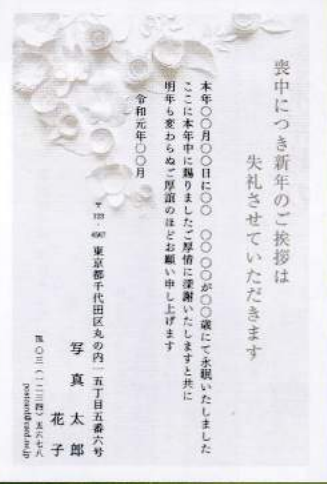 喪中につき新年のご挨拶は
失礼させていただきます
本年〇〇月〇〇日に〇〇 〇〇 〇〇が〇〇歳にて永眠いたしました
ここに本年中に賜りましたご厚情に深謝いたしますと共に
明年も変わらぬご厚誼のほどお願い申し上げます
令和元年〇〇月
〒123-4567 東京都千代田区丸の内一五丁目五番六号
写真太郎
花子
℡〇三(一二三四)五六七八
postcard@card.ne.jp